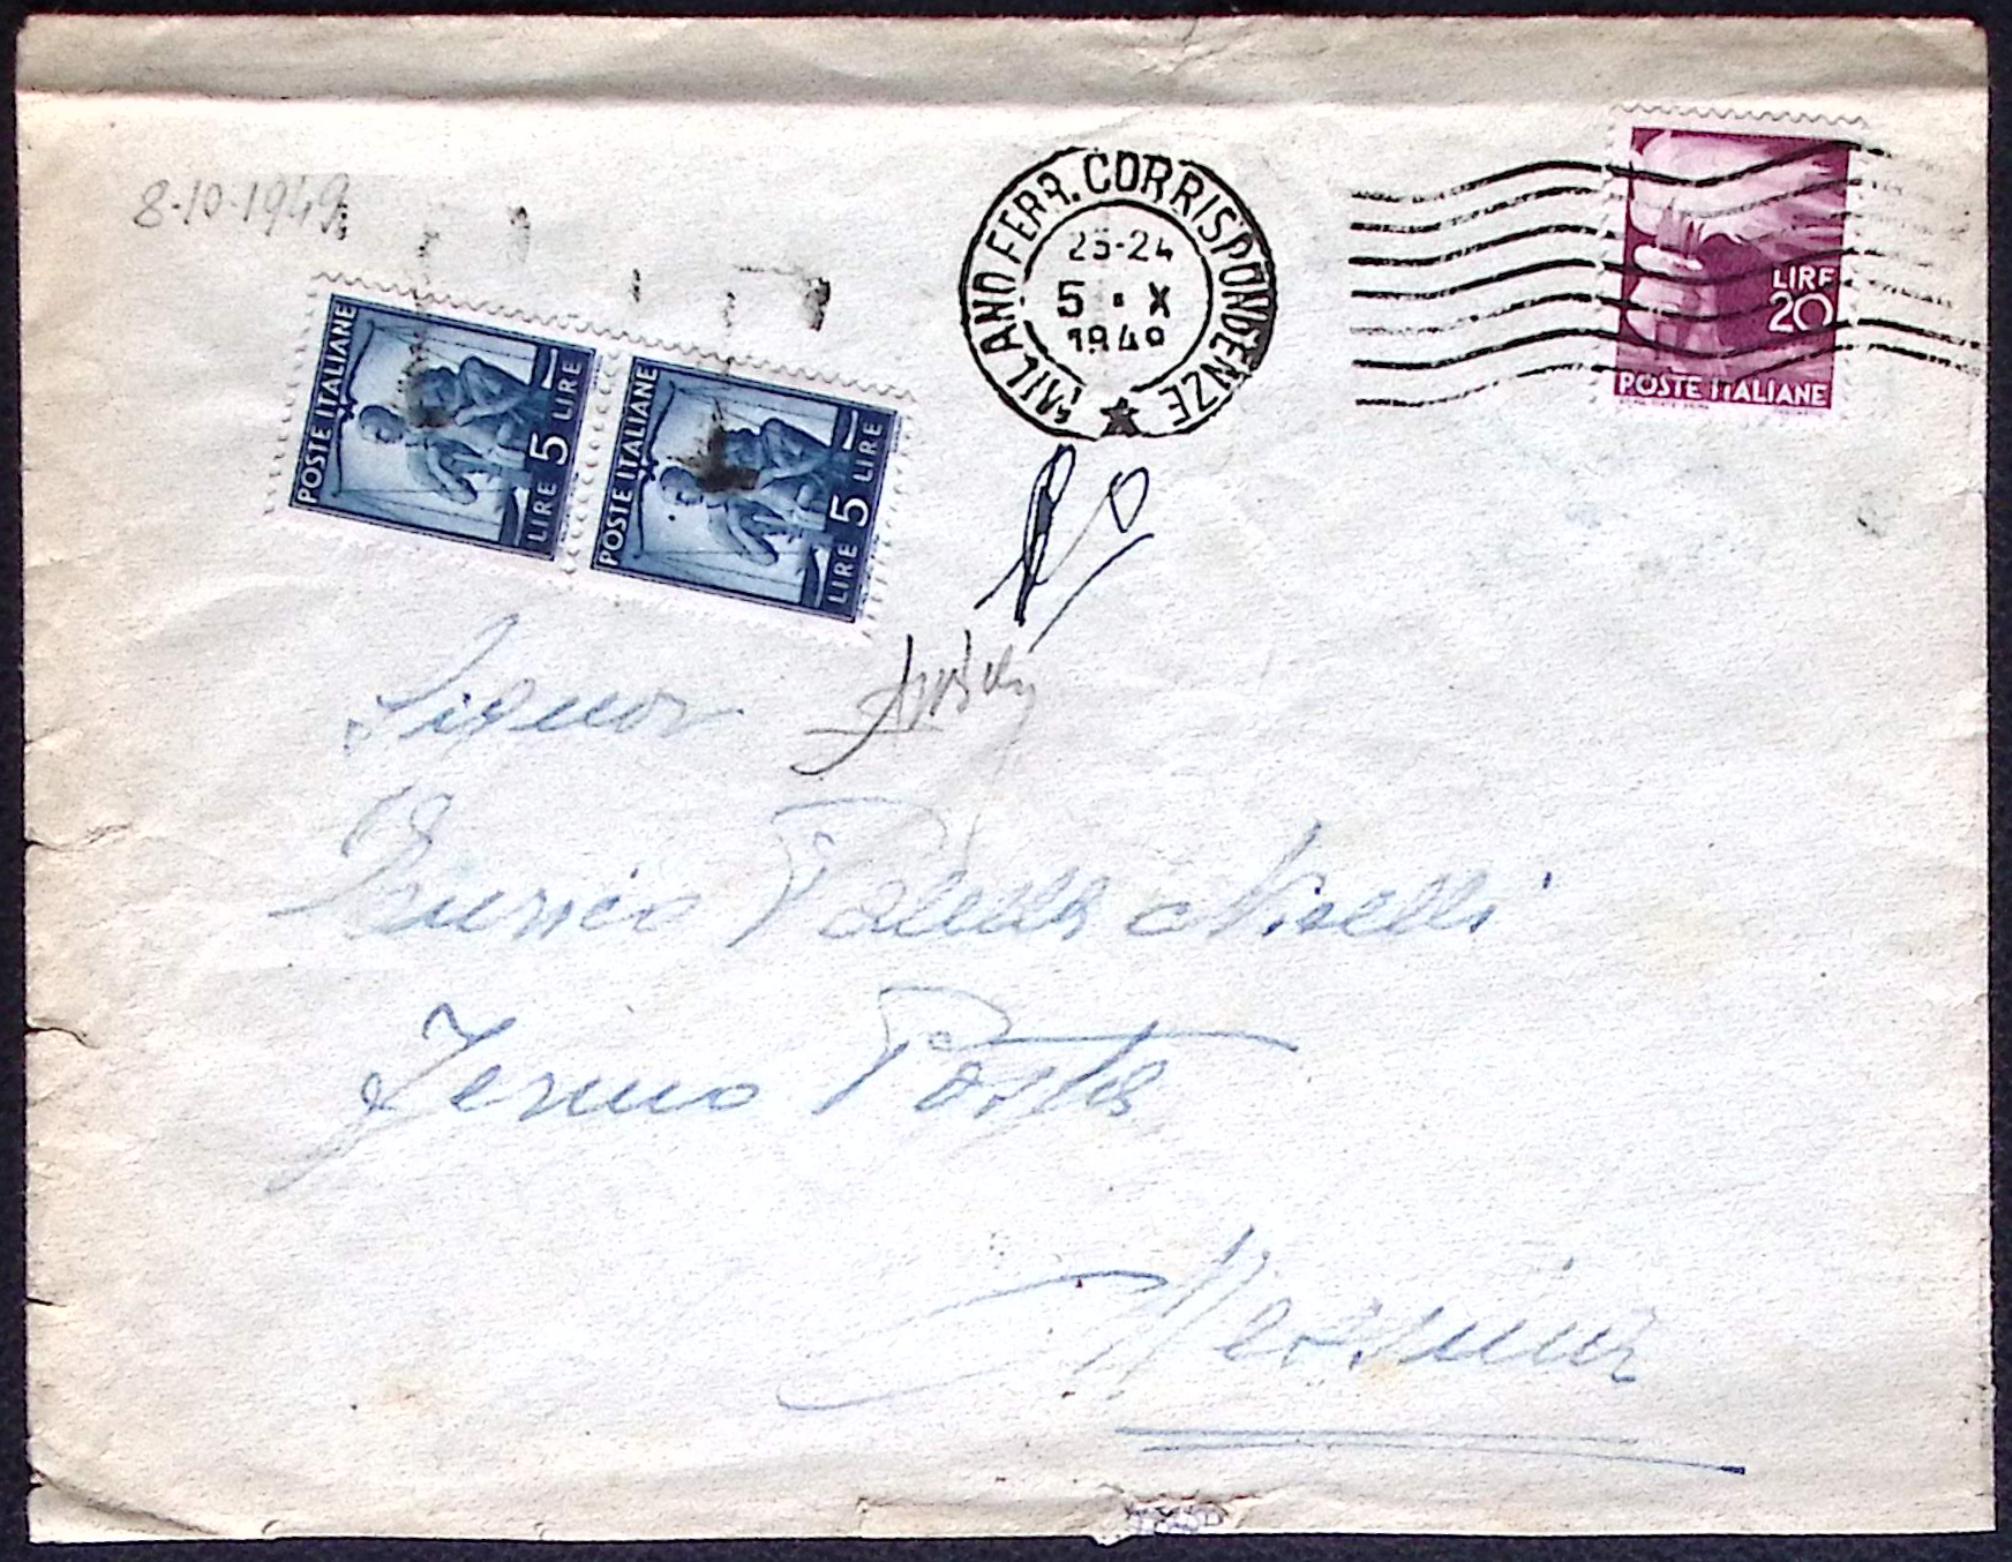 8-10-1949
MILANO FERR. CORRISPONDENZE
23-24
5 · X
1949
LIRE
20
POSTE ITALIANE
POSTE ITALIANE
LIRE 5 LIRE
POSTE ITALIANE
LIRE 5 LIRE
Signor
Enrico
Fermo Posta
Messina